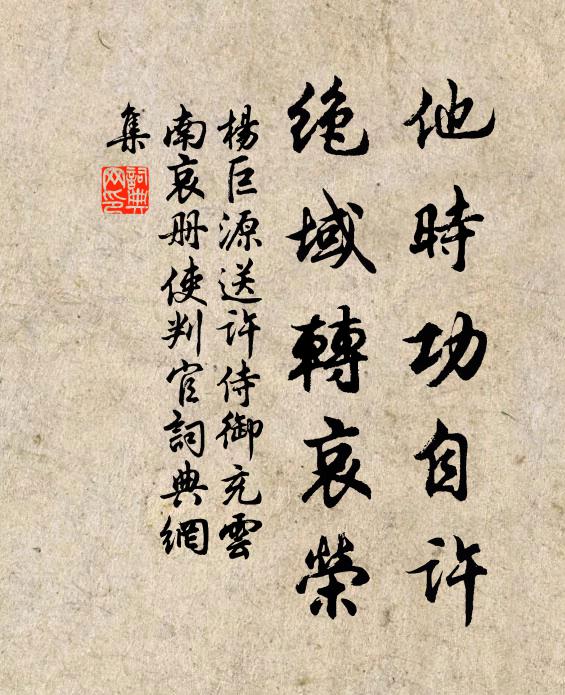 他時功自許
絶域轉哀榮
楊巨源送許侍御充雲
南哀册使判官詞典網
集
詞典
网印